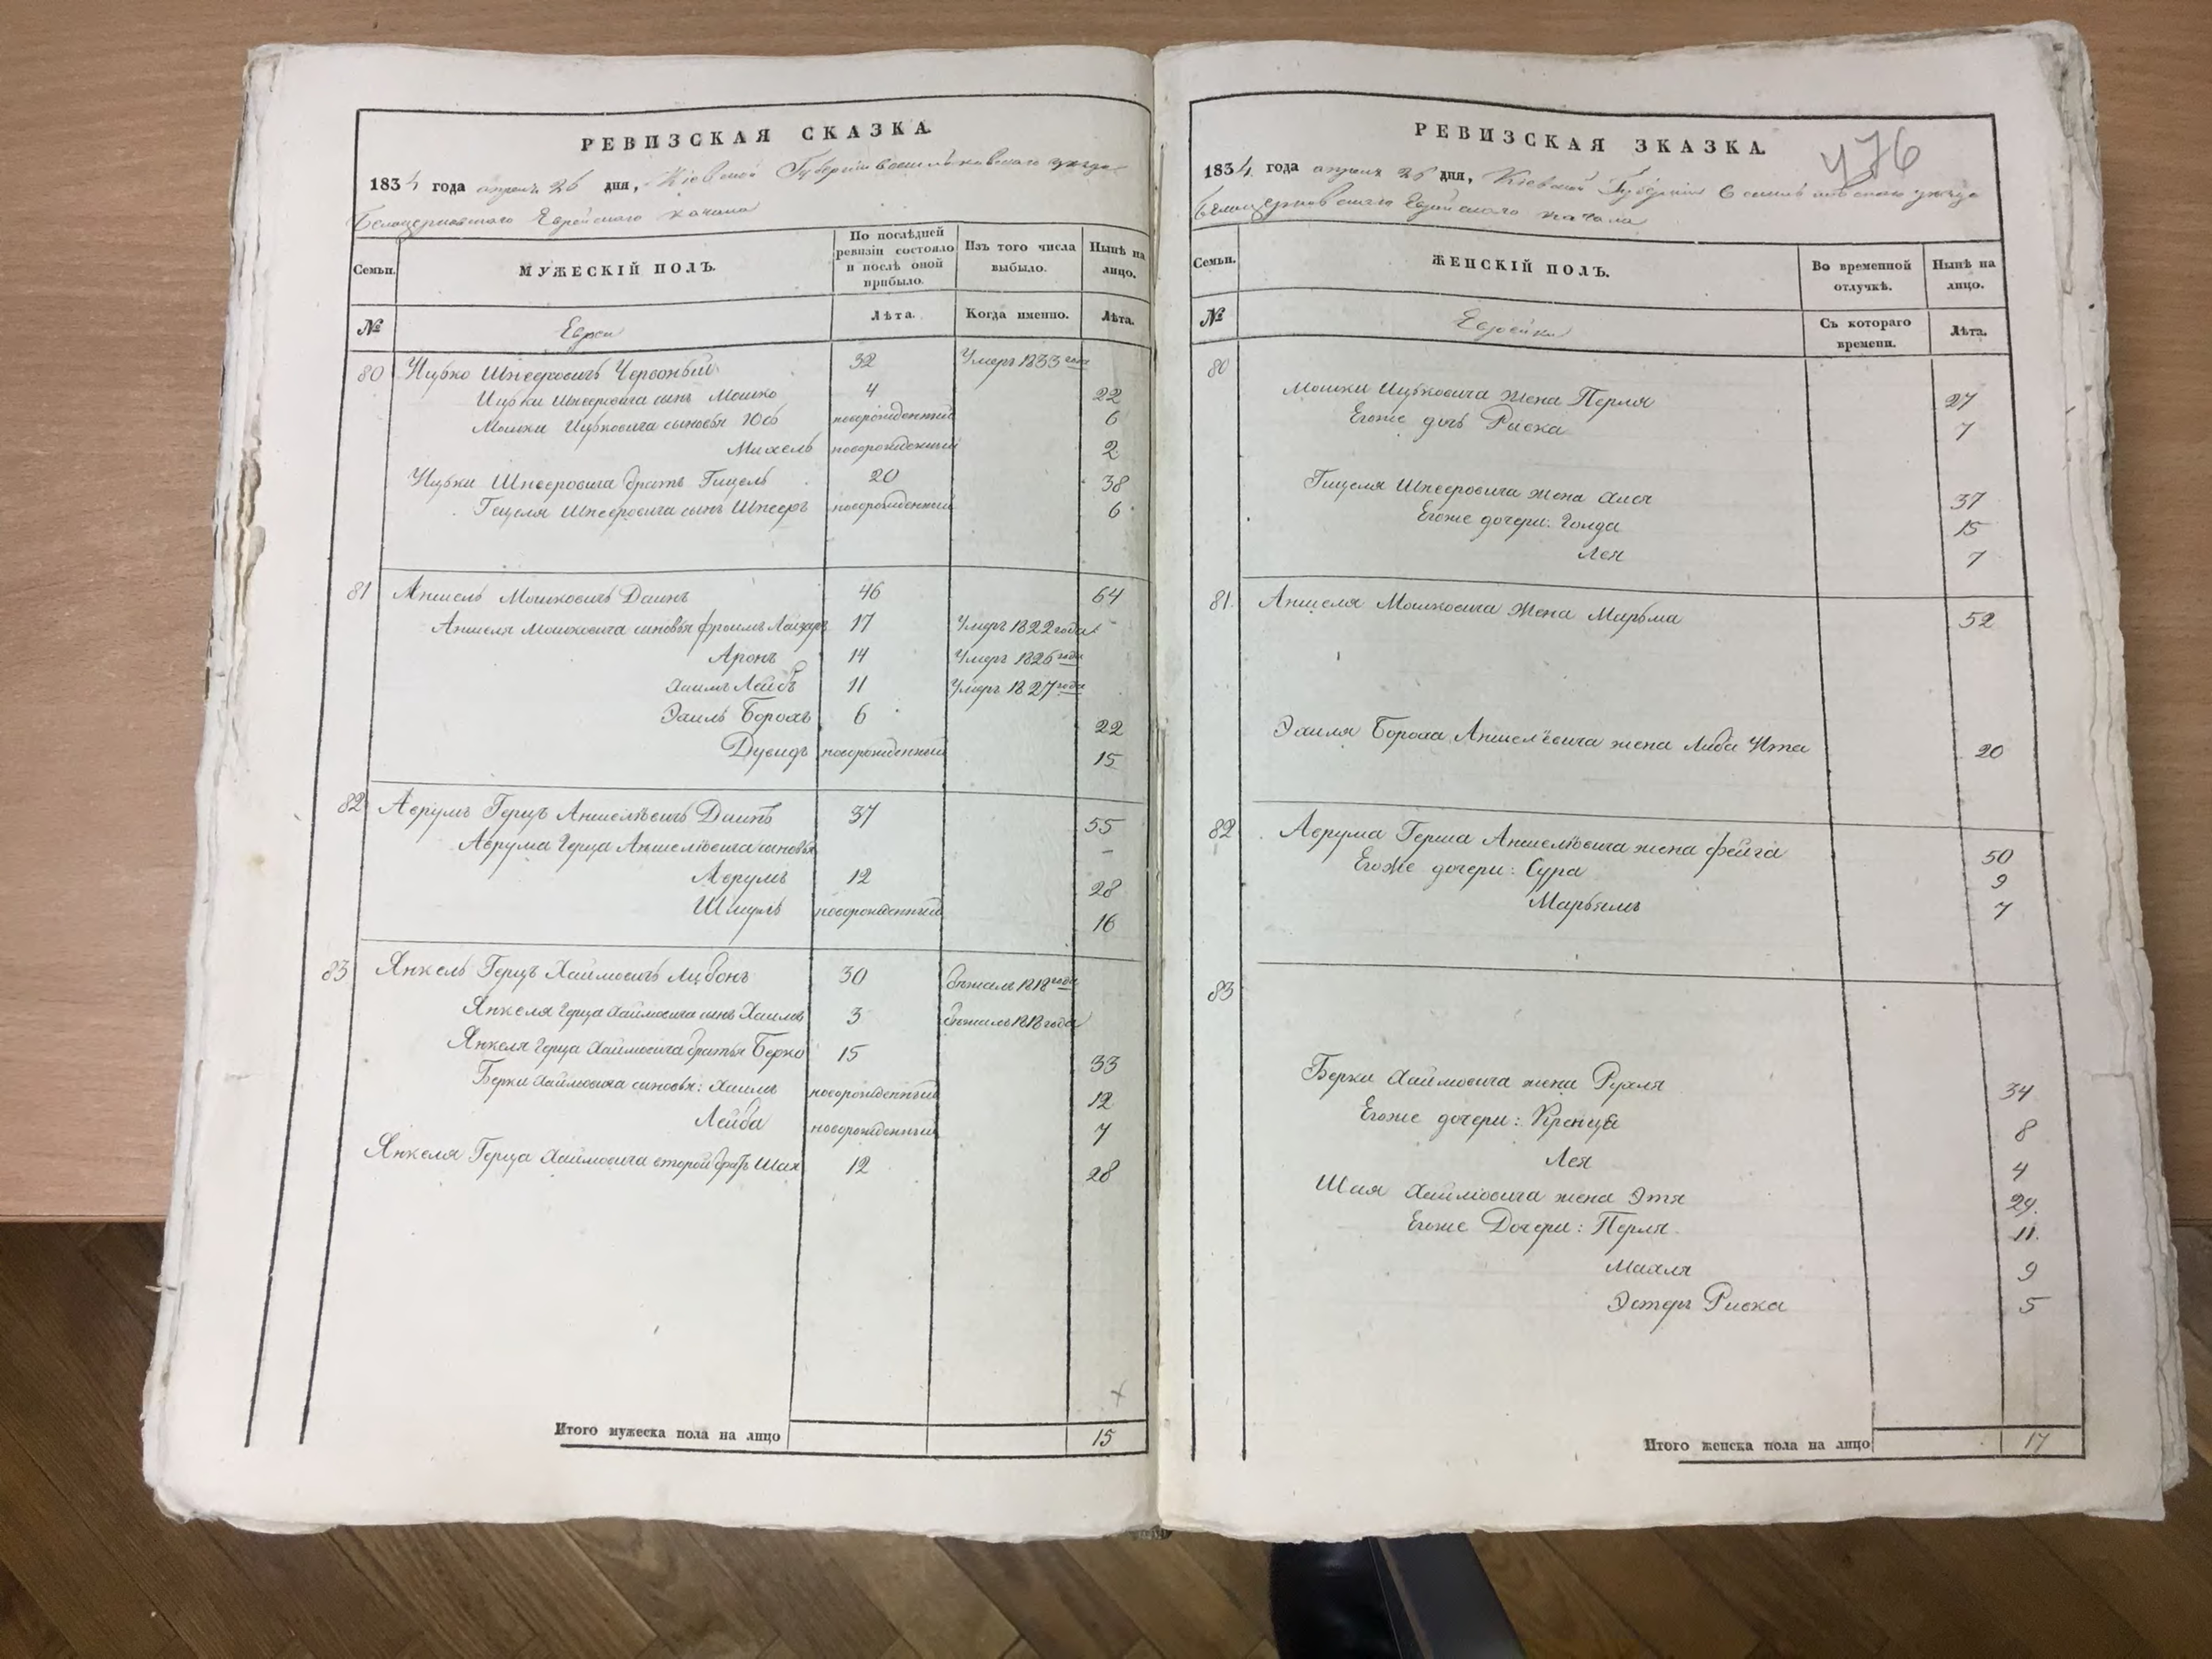 РЕВИЗСКАЯ СКАЗКА.
1834 года апреля 26 дня, Кіевской Губерніи Васильковскаго уезда
Белоцерковского Еврейского кагала
Семьи.
МУЖЕСКІЙ ПОЛЪ.
По послѣдней ревизіи состояло и послѣ оной прибыло.
Изъ того числа выбыло.
Нынѣ на лицо.
№
Евреи
Лѣта.
Когда именно.
Лѣта.
80 Ицько Шнееровичъ Червоный 32 Умеръ 1833 года
Ицьки Шнееровича сынъ Мошко 4 22
Мошки Ицьковича сыновья Юсь новорожденный 6
Михель новорожденный 2
Ицьки Шнееровича братъ Гицель 20 38
Гицеля Шнееровича сынъ Шнееръ новорожденный 6
81 Аншель Мошковичъ Даинъ 46 64
Аншеля Мошковича сыновья Фроимъ Лейзаръ 17 Умеръ 1822 года
Аронъ 14 Умеръ 1826 года
Хаимъ Лейбъ 11 Умеръ 1827 года
Эхиль Борохъ 6 22
Дувидъ новорожденный 15
82 Аврумъ Герцъ Аншелевичъ Даинъ 37 55
Аврума Герца Аншелевича сыновья –
Аврумъ 12 28
Шмуль новорожденный 16
83 Янкель Герцъ Хаймовичъ Либонъ 30 бежалъ 1818 года
Янкеля Герца Хаймовича сынъ Хаимъ 3 бежалъ 1818 года
Янкеля Герца Хаймовича братья Берко 15 33
Берки Хаймовича сыновья: Хаимъ новорожденный 12
Лейба новорожденный 7
Янкеля Герца Хаймовича второй братъ Шая 12 28
Итого мужеска пола на лицо 15
РЕВИЗСКАЯ ЗКАЗКА.
476
1834 года апреля 26 дня, Кіевской Губерніи Васильковского уезда
Белоцерковскаго Еврейского кагала
Семьи.
ЖЕНСКІЙ ПОЛЪ.
Во временной отлучкѣ.
Нынѣ на лицо.
№
Еврейки
Съ котораго времени.
Лѣта.
80
Мошки Ицьковича жена Перля 27
Егоже дочь Ривка 7
Гицеля Шнееровича жена Хася 37
Егоже дочери: Голда 15
Лея 7
81. Аншеля Мошковича Жена Марьма 52
Эхиля Бороха Аншелевича жена Либа Ита 20
82 Аврума Герша Аншелевича жена Фейга 50
Егоже дочери: Сура 9
Марьямъ 7
83
Берки Хаймовича жена Рухля 34
Егоже дочери: Кренця 8
Лея 4
Шая Хаймовича жена Этя 29.
Егоже Дочери: Перля 11.
Махля 9
Эстеръ Ривка 5
Итого женска пола на лицо 17